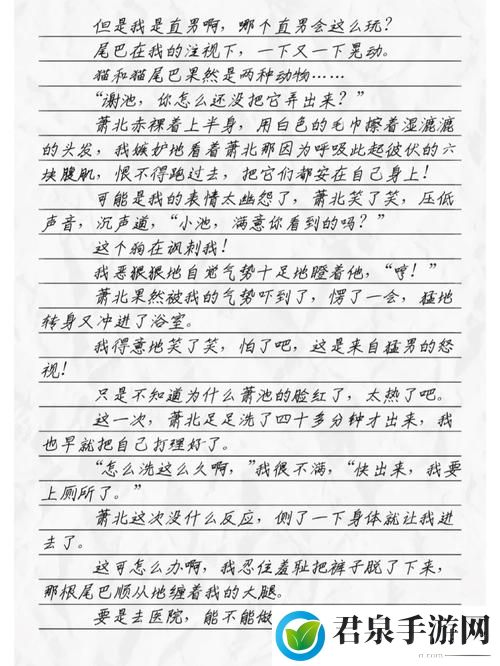 但是我是直男啊，哪个直男会这么玩？
尾巴在我的注视下，一下又一下晃动。
猫和猫尾巴果然是两种动物……
“谢池，你怎么还没把它弄出来？”
萧北赤裸着上半身，用白色的毛巾擦着湿漉漉
的头发，我嫉妒地看着萧北那因为呼吸此起彼伏的六
块腹肌，恨不得跑过去，把它们都安在自己身上！
可能是我的表情太幽怨了，萧北笑了笑，压低
声音，沉声道，“小池，满意你看到的吗？”
这个狗在讽刺我！
我恶狠狠地自觉气势十足地瞪着他，“哼！”
萧北果然被我的气势吓到了，愣了一会，猛地
转身又冲进了浴室。
我得意地笑了笑，怕了吧，这是来自猛男的怒
视！
只是不知道为什么萧池的脸红了，太热了吧。
这一次，萧北足足洗了四十多分钟才出来，我
也早就把自己打理好了。
“怎么洗这么久啊，”我很不满，“快出来，我要
上厕所了。”
萧北这次没什么反应，侧了一下身体就让我进
去了。
这可怎么办啊，我忍住羞耻把裤子脱了下来，
那根尾巴顺从地缠着我的大腿。
要是去医院，能不能做
君泉手游网